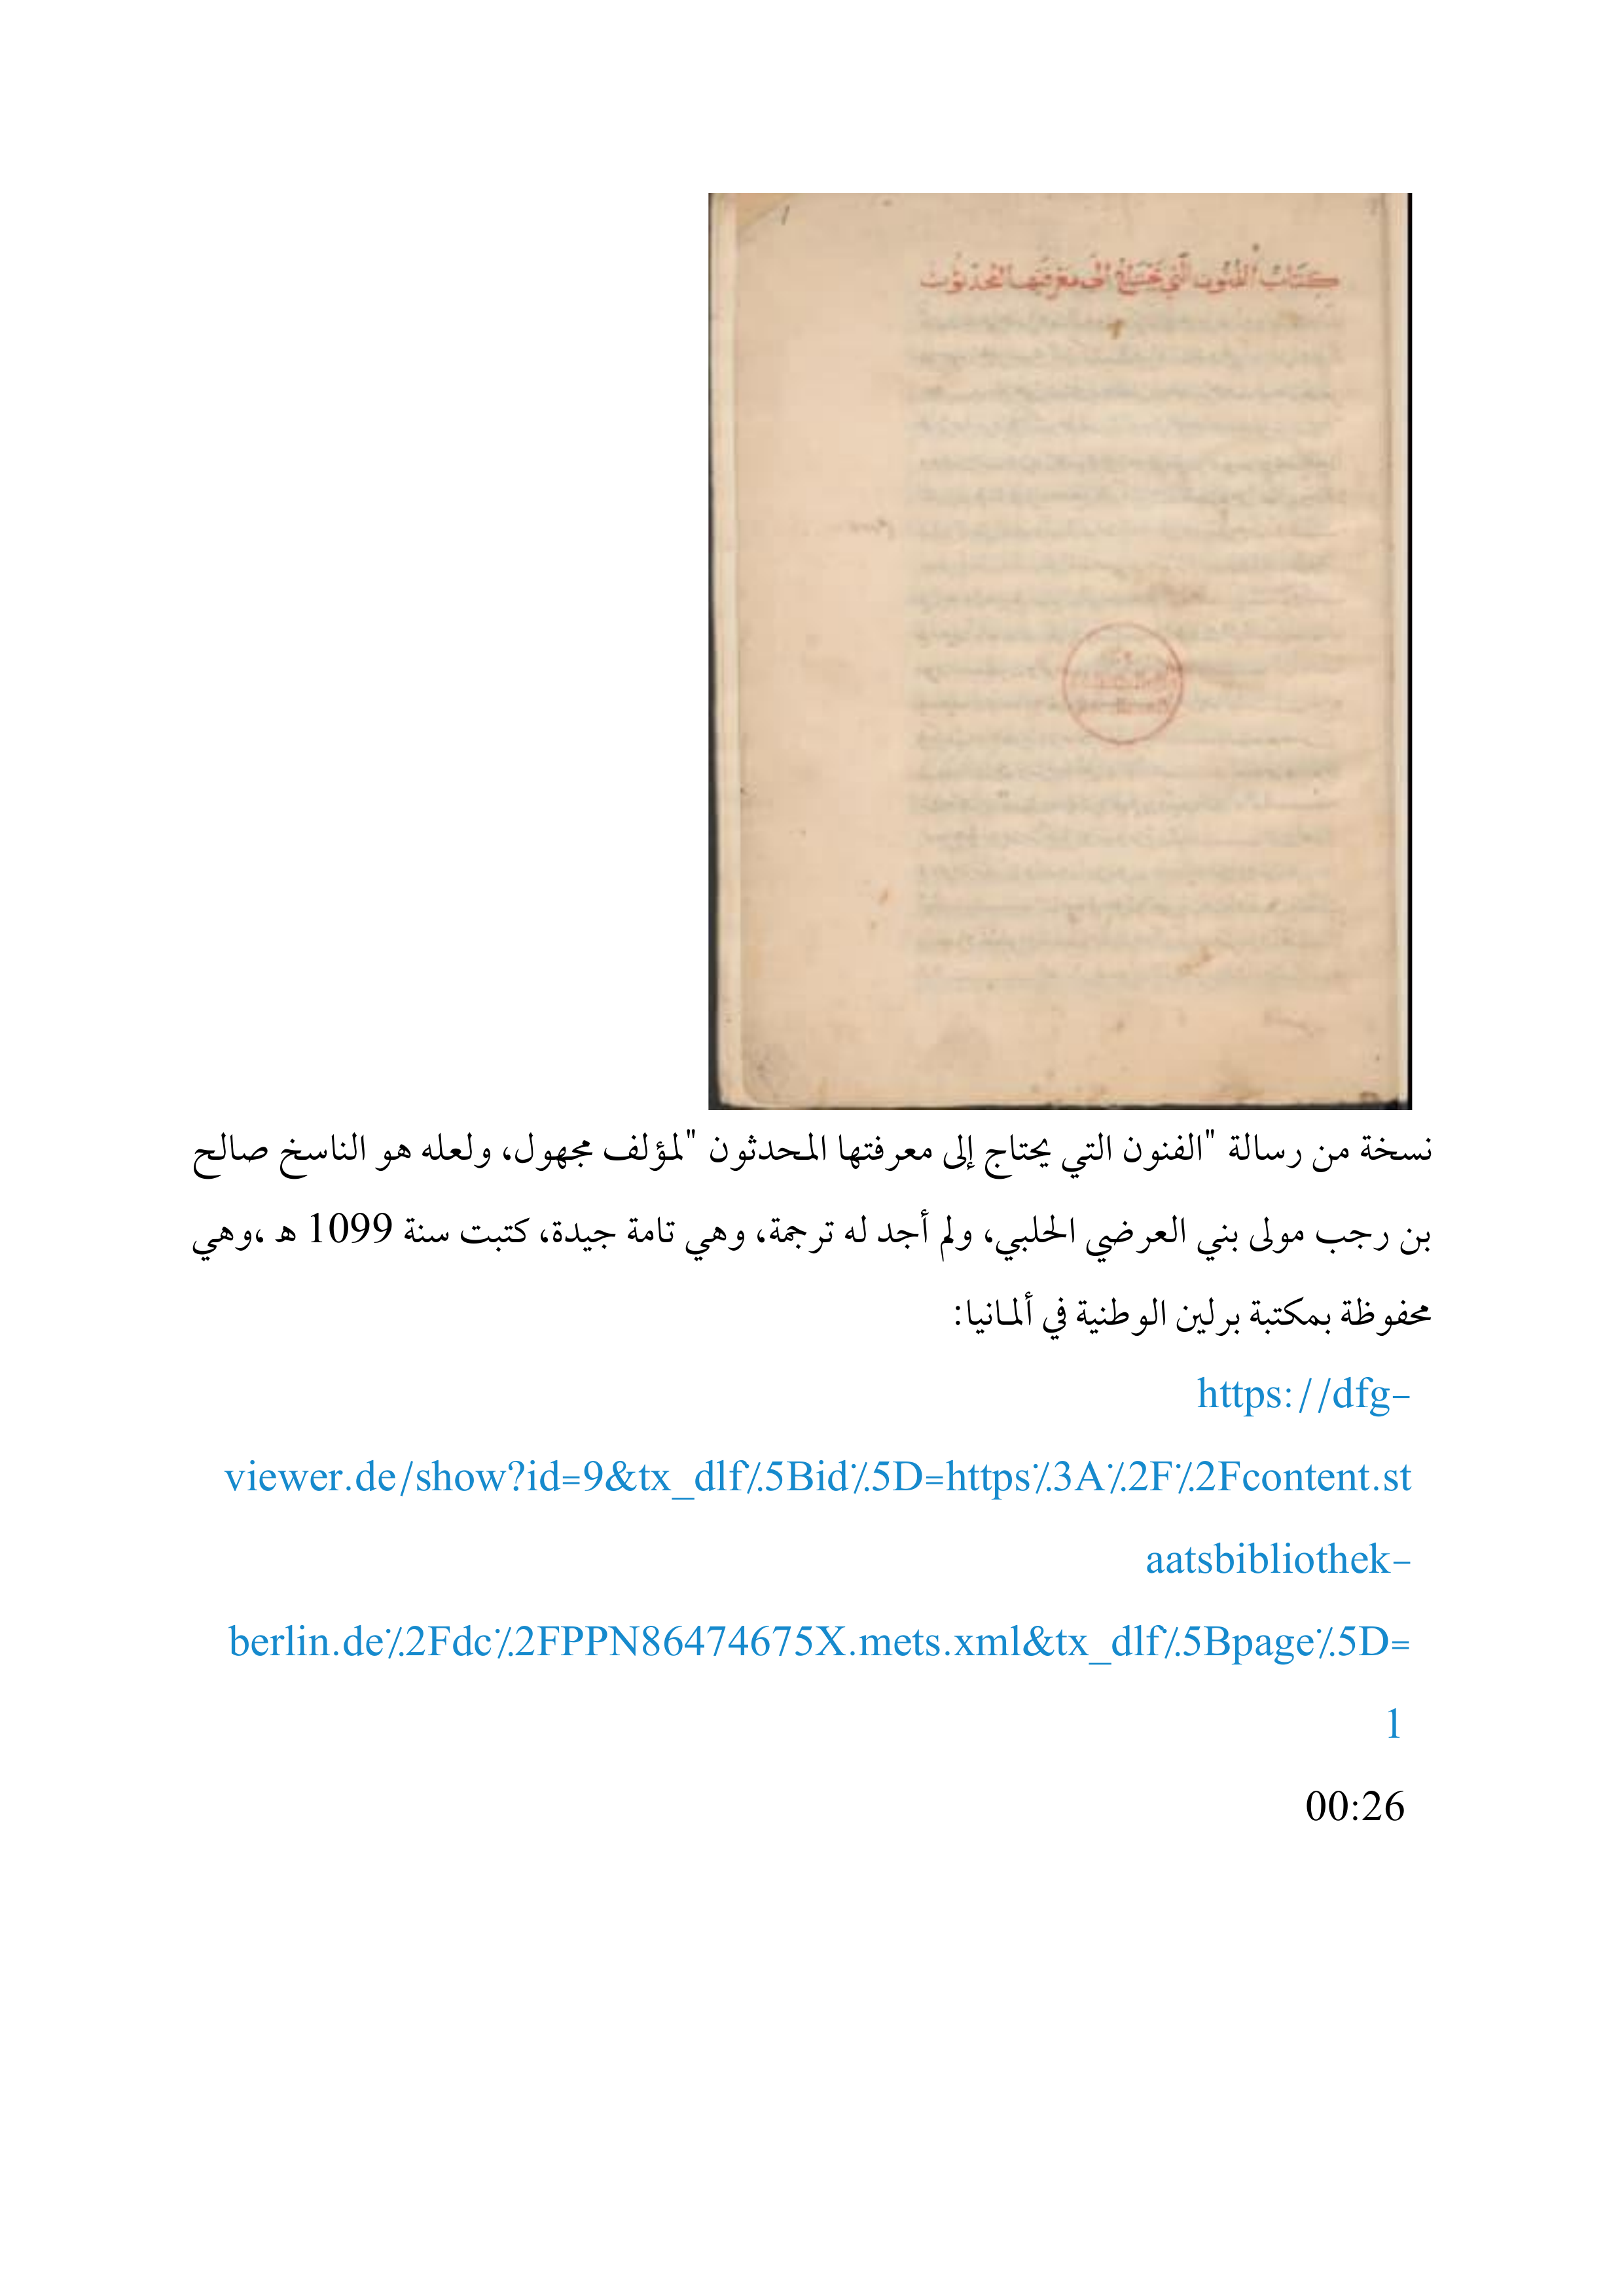 كتاب الفنون التي يحتاج إلى معرفتها المحدثون
نسخة من رسالة "الفنون التي يحتاج إلى معرفتها المحدثون "لمؤلف مجهول، ولعله هو الناسخ صالح
بن رجب مولى بني العرضي الحلبي، ولم أجد له ترجمة، وهي تامة جيدة، كتبت سنة 1099 ه ،وهي
محفوظة بمكتبة برلين الوطنية في ألمانيا:
https://dfg-
viewer.de/show?id=9&tx_dlf%5Bid%5D=https%3A%2F%2Fcontent.st
aatsbibliothek-
berlin.de%2Fdc%2FPPN86474675X.mets.xml&tx_dlf%5Bpage%5D=
1
00:26